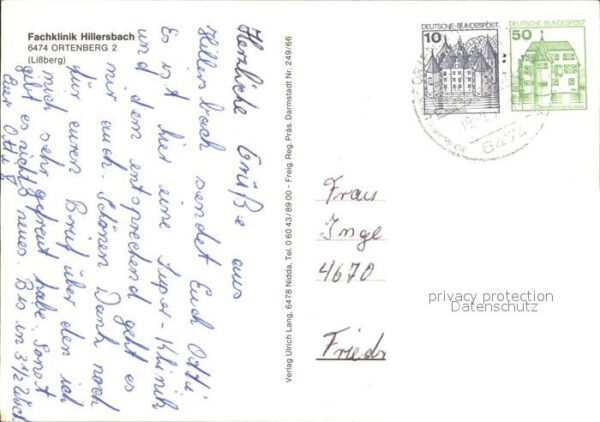 Fachklinik Hillersbach
6474 ORTENBERG 2
(Lißberg)
Herzliche Grüße aus
Hillersbach sendet Euch Otti
Es ist hier eine Super-Klinik
und dem entsprechend geht es
mir auch. Schönen Dank noch
für euren Brief über den ich
mich sehr gefreut habe. Sonst
gibt es nichts neues. Bis in 3 1/2 Woch
Eure Otti
Verlag Ulrich Lang, 6478 Nidda, Tel. 0 60 43/89 00 - Freig. Reg. Präs. Darmstadt Nr. 249/66
DEUTSCHE BUNDESPOST
10
DEUTSCHE BUNDESPOST
50
6474
Frau
Inge
4670
Frieds
privacy protection
Datenschutz